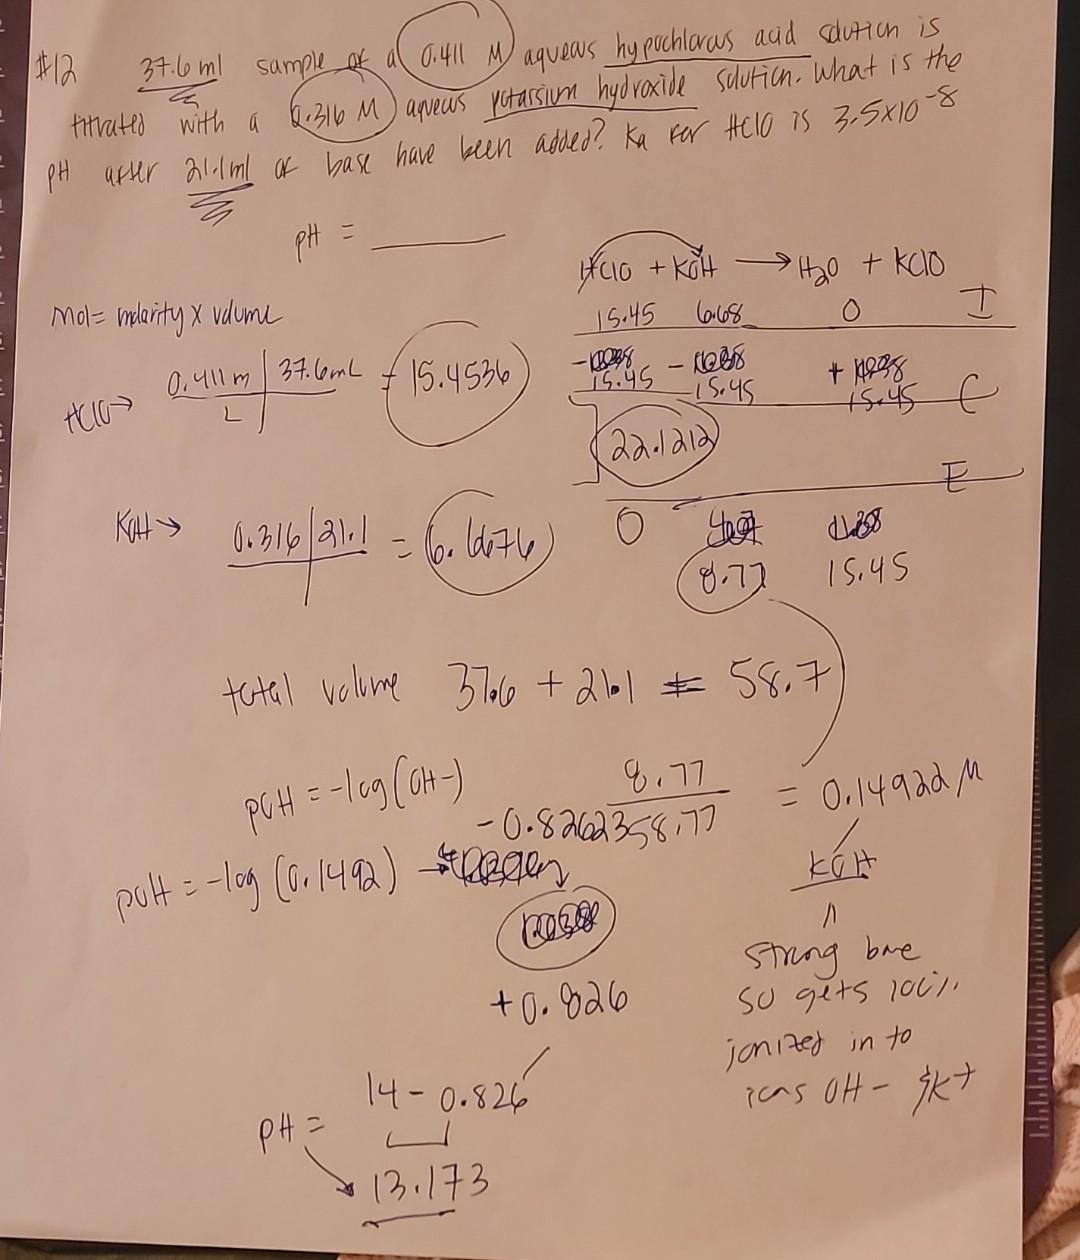 #12 37.6 ml sample of a 0.411 M aqueous hypochlorous acid solution is
titrated with a 0.316 M aqueous potassium hydroxide solution. What is the
pH after 21.1ml of base have been added? Ka for HClO is 3.5x10-8
pH = ______
HClO + KOH → H2O + KClO
15.45 6.68 0 I
Mol= molarity x volume
HClO→ 0.411m | 37.6mL = 15.4536
L
- 15.45 - 15.45 + 15.45 C
22.1212
E
KOH → 0.316 | 21.1 = 6.6676
0 8.77 15.45
total volume 37.6 + 21.1 = 58.7
pOH = -log(OH-) 8.77 = 0.14922 M
-0.82623 58.77
pOH = -log (0.1492) →
KOH
strong base
so gets 100%
ionized in to
ions OH- & K+
+0.826
pH = 14 - 0.826
13.173